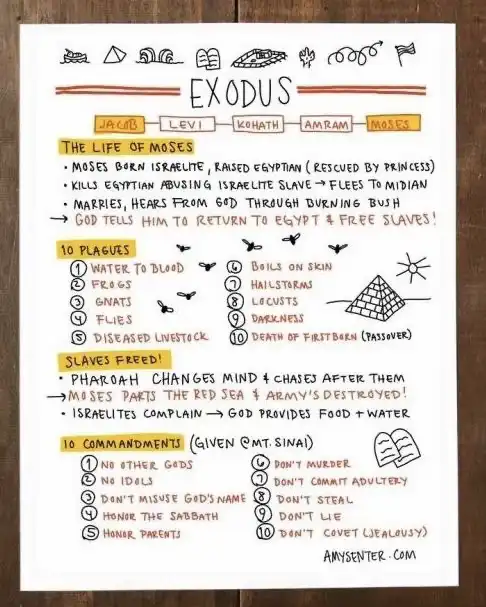 EXODUS
JACOB LEVI KOHATH AMRAM MOSES
THE LIFE OF MOSES
• MOSES BORN ISRAELITE, RAISED EGYPTIAN (RESCUED BY PRINCESS)
• KILLS EGYPTIAN ABUSING ISRAELITE SLAVE → FLEES TO MIDIAN
• MARRIES, HEARS FROM GOD THROUGH BURNING BUSH
→ GOD TELLS HIM TO RETURN TO EGYPT & FREE SLAVES!
10 PLAGUES
1 WATER TO BLOOD
2 FROGS
3 GNATS
4 FLIES
5 DISEASED LIVESTOCK
6 BOILS ON SKIN
7 HAILSTORMS
8 LOCUSTS
9 DARKNESS
10 DEATH OF FIRSTBORN (PASSOVER)
SLAVES FREED!
• PHAROAH CHANGES MIND & CHASES AFTER THEM
→ MOSES PARTS THE RED SEA & ARMY'S DESTROYED!
• ISRAELITES COMPLAIN → GOD PROVIDES FOOD + WATER
10 COMMANDMENTS (GIVEN @MT. SINAI)
1 NO OTHER GODS
2 NO IDOLS
3 DON'T MISUSE GOD'S NAME
4 HONOR THE SABBATH
5 HONOR PARENTS
6 DON'T MURDER
7 DON'T COMMIT ADULTERY
8 DON'T STEAL
9 DON'T LIE
10 DON'T COVET (JEALOUSY)
AMYSENTER.COM